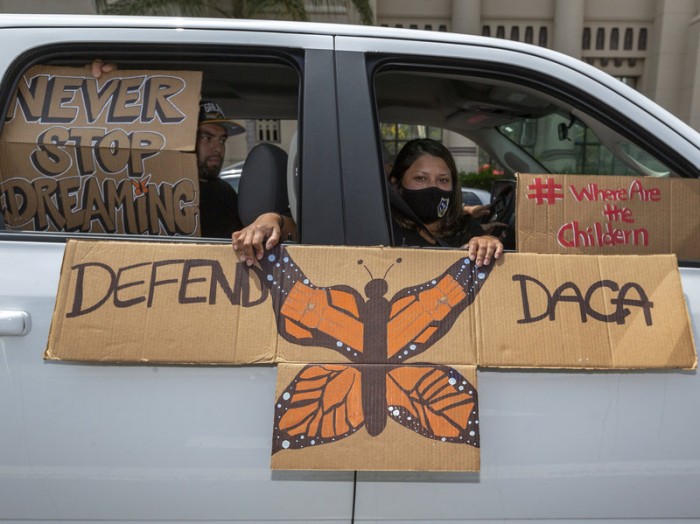 NEVER
STOP
DREAMING
# Where Are
the
Childern
DEFEND DACA